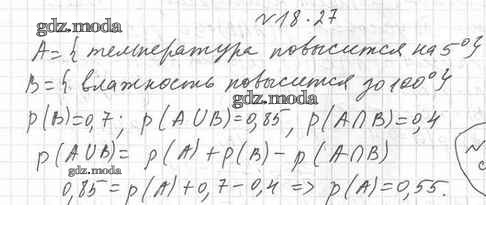 №18.27
gdz.moda
A={ температура повысится на 5°}
B={ влажность повысится до 100°}
gdz.moda
p(B)=0,7; p(A∪B)=0,85, p(A∩B)=0,4
p(A∪B)= p(A)+p(B)-p(A∩B)
gdz.moda
0,85=p(A)+0,7-0,4 => p(A)=0,55.